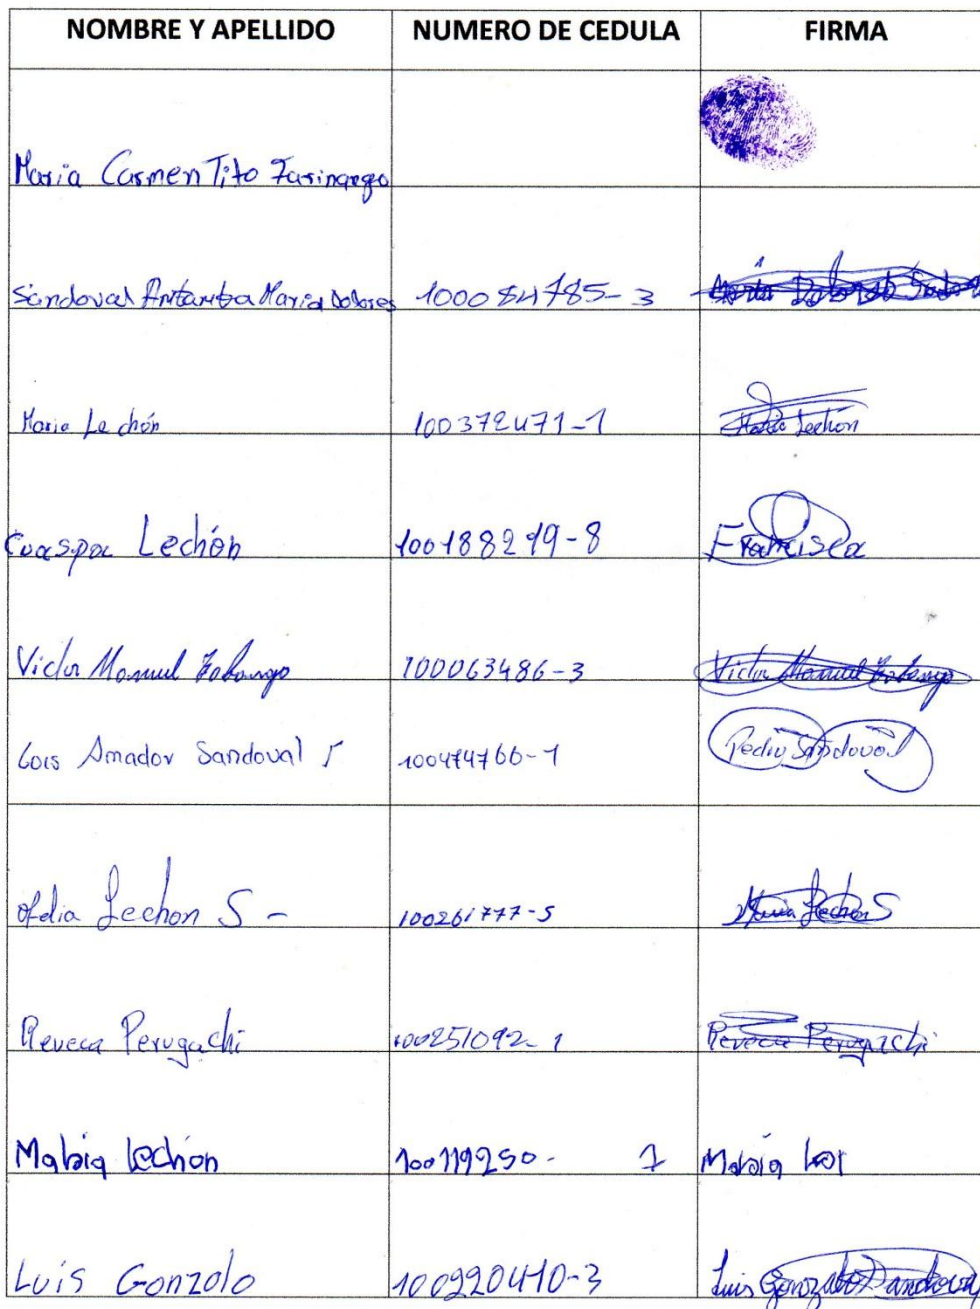 NOMBRE Y APELLIDO NUMERO DE CEDULA FIRMA
Maria Carmen Tito Farinango
Sandoval Antamba Maria Dolores 100084785-3
Maria Lechón 100372471-1 Maria Lechón
Cuaspa Lechón 100188219-8 Francisca
Victor Manuel Tabango 100063486-3 Victor Manuel Tabango
Luis Amador Sandoval 100474766-1 Pedro Sandoval
Ofelia Lechon S - 100261777-5 Maria Lechon S
Reveca Perugachi 100251092-1 Reveca Perugachi
Mabia Lechon 100119250- 1 Mabia
Luis Gonzolo 100220410-3 Luis Gonzalo Sandoval